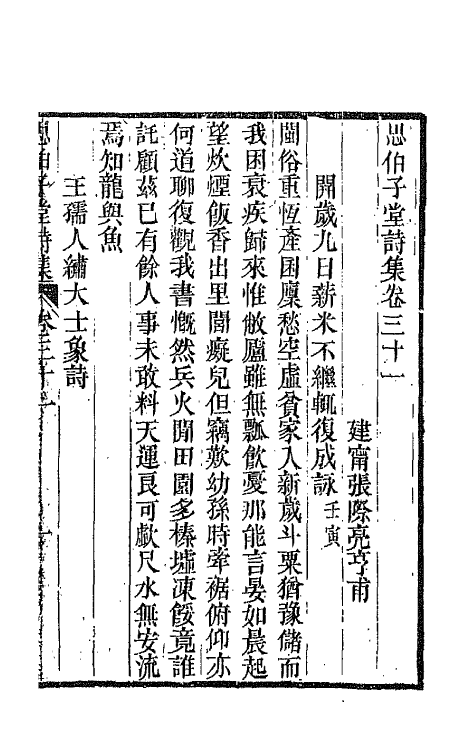 思伯子堂詩集卷三十一
建甯張際亮亨甫
開歲九日薪米不繼輒復成詠壬寅
閩俗重恆產囷廩愁空虛貧家入新歲斗粟猶豫儲而
我困衰疾歸來惟敝廬雖無瓢飲憂那能言晏如晨起
望炊煙飯香出里閭癡兒但竊歎幼孫時牽裾俯仰亦
何道聊復觀我書慨然兵火間田園多榛墟凍餒竟誰
託顧茲已有餘人事未敢料天運良可歔尺水無安流
焉知龍與魚
王孺人繡大士象詩
思伯子堂詩集 卷三十一 一